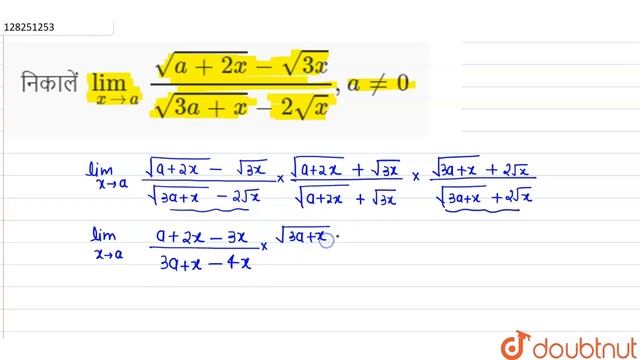 128251253
निकालें lim x→a (√(a + 2x) − √(3x)) / (√(3a + x) − 2√x), a ≠ 0
lim x→a (√(a+2x) − √3x) / (√(3a+x) − 2√x) × (√(a+2x) + √3x) / (√(a+2x) + √3x) × (√(3a+x) + 2√x) / (√(3a+x) + 2√x)
lim x→a (a+2x − 3x) / (3a+x − 4x) × √(3a+x)
doubtnut